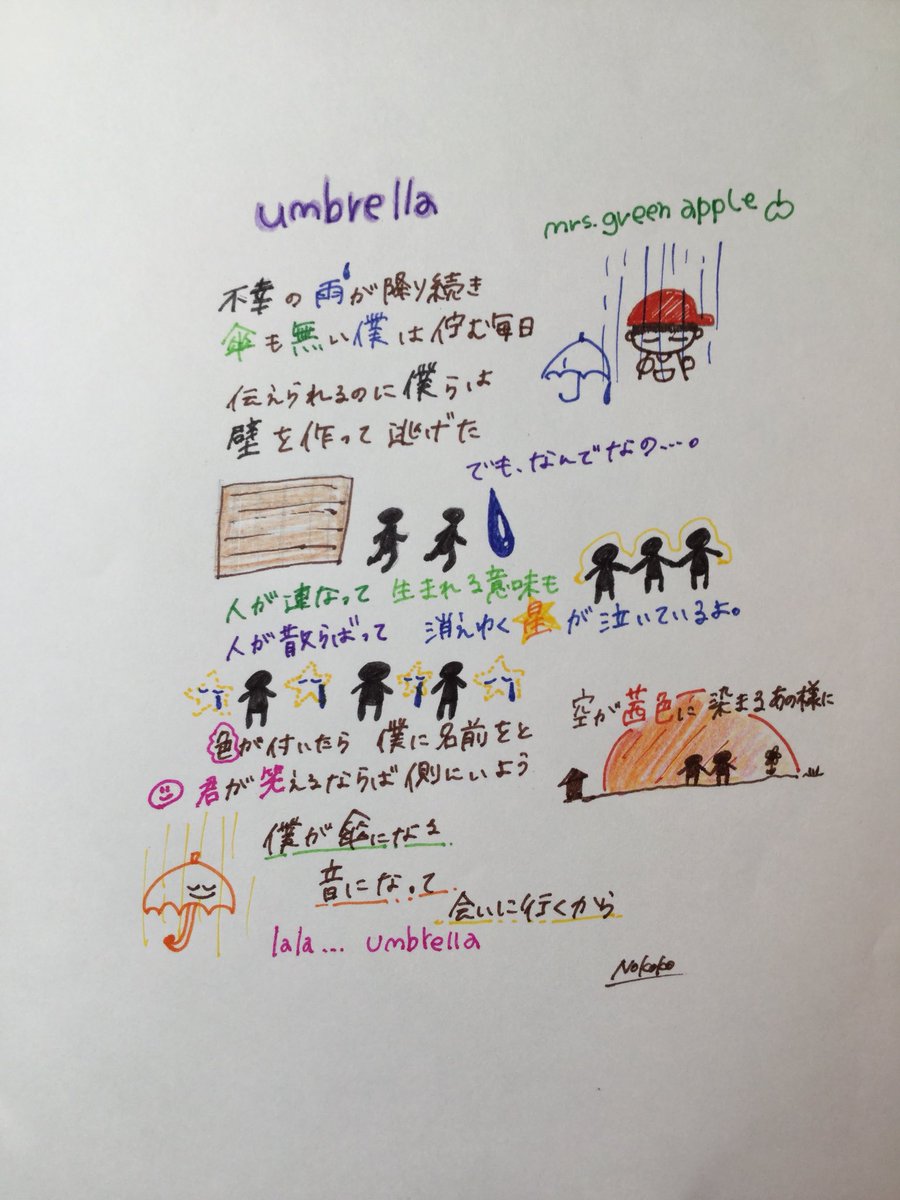 umbrella
mrs. green apple
不幸の雨が降り続き
傘も無い僕は佇む毎日
伝えられるのに僕らは
壁を作って逃げた
でも、なんでなの…。
人が連なって 生まれる意味も
人が散らばって 消えゆく星が泣いているよ。
空が茜色に染まるあの様に
色が付いたら 僕に名前をと
君が笑えるならば側にいよう
僕が傘になる
音になって
会いに行くから
lala... umbrella
Nokoko